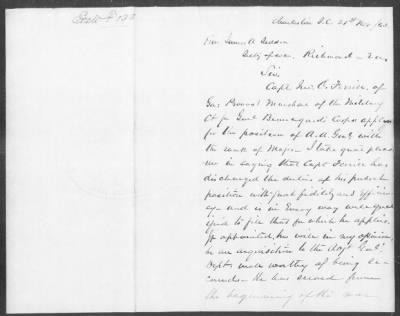 Charleston S.C. 25th Nov /63
Hon James A Seddon
Secty of War, Richmond - Va
Sir,
Capt Jno. C. Ferrier, of
Ga: Provost Marshal of the Military
Ct for Genl Beauregard's Corps applies
for the position of A.A. Genl with
the rank of Major - I take great pleas
ure in saying that Capt Ferrier has
discharged the duties of his present
position with great fidelity and efficien
cy - and is in every way well qual
ified to fill that for which he applies.
If appointed, he will in my opinion
be an acquisition to the Adjt Genls
Dept, and worthy of being se
cured - He has served from
the beginning of the war